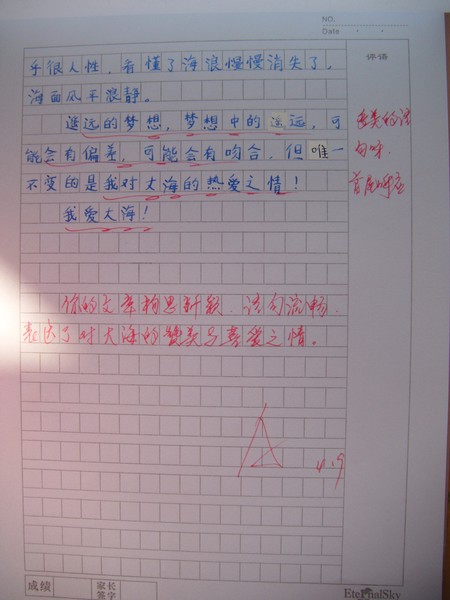 NO.
Date
评语
乎很人性，看懂了海浪慢慢消失了，
海面风平浪静。
遥远的梦想，梦想中的遥远，可
能会有偏差，可能会有吻合，但唯一
不变的是我对大海的热爱之情！
我爱大海！
优美的语
句呀．
首尾呼应
你的文章构思新颖．语句流畅．
表达了对大海的赞美与喜爱之情。
A
11.9
成绩
家长
签字
EternalSky